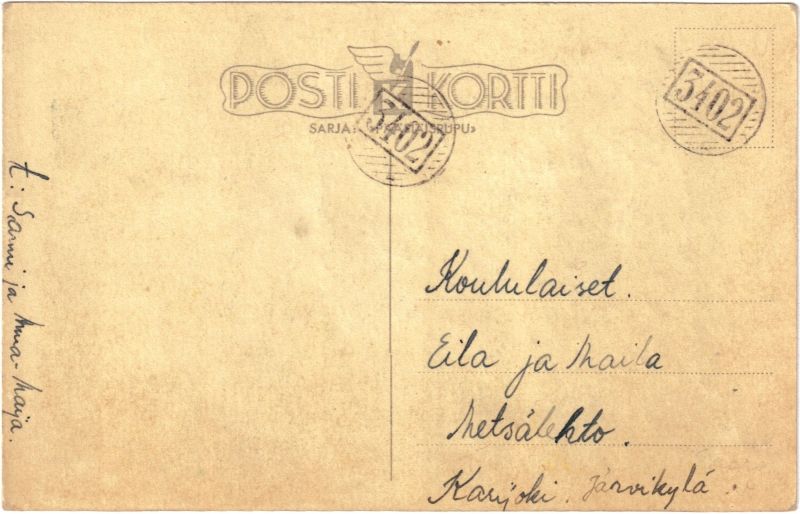 POSTI KORTTI
SARJA: «PÄÄSIÄISPUPU»
3402
3402
t: Sarmi ja Anna-Maija.
Koululaiset.
Eila ja Maila
Metsälehto.
Karijoki. Järvikylä.